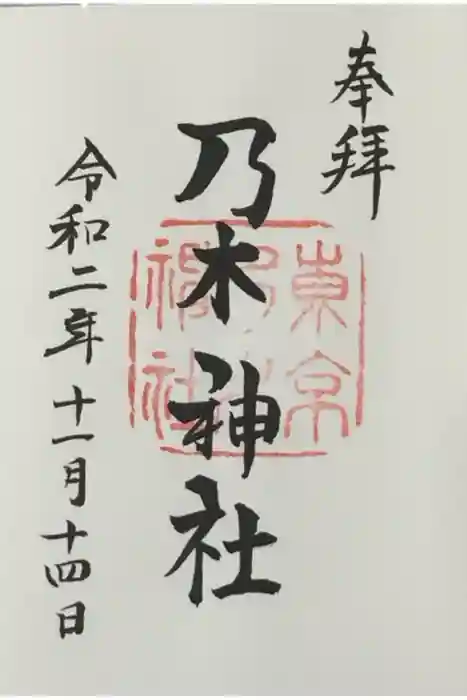 奉拜
乃木神社
東京
神社
令和二年十一月十四日